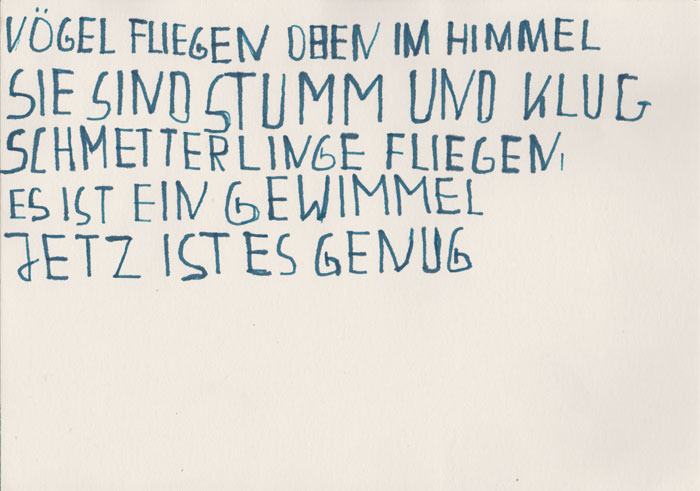 VÖGEL FLIEGEN OBEN IM HIMMEL
SIE SIND STUMM UND KLUG
SCHMETTERLINGE FLIEGEN,
ES IST EIN GEWIMMEL
JETZ IST ES GENUG